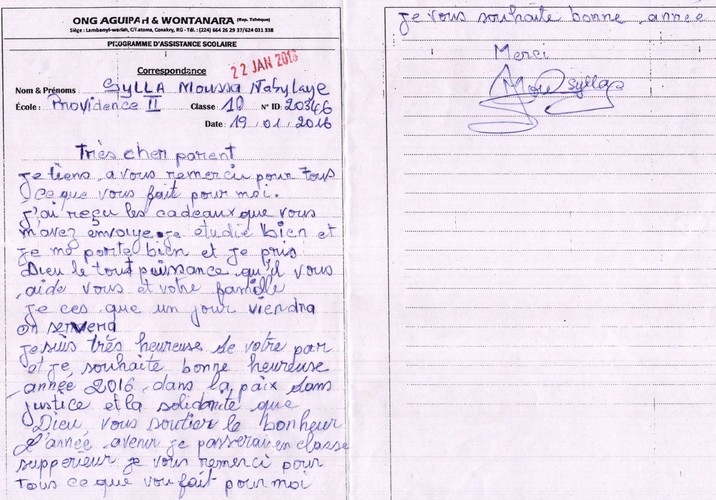 ONG AGUIPAH & WONTANARA (Rep. Tchèque)
Siège : Lambanyi-wariah, C/Ratoma, Conakry, RG - Tél. : (224) 664 26 29 37/624 031 338
PROGRAMME D'ASSISTANCE SCOLAIRE
Correspondance
22 JAN 2016
Nom & Prénoms : SYLLA Moussa Nabylaye
École : Providence II Classe : 10 N° ID: 20346
Date : 19 . 01 . 2016
Très cher parent
je tiens a vous remerciu pour tous
ce que vous fait pour moi.
j'ai reçu les cadeaux que vous
m'avez envoye. je etudie bien et
je me porte bien et je pris
Dieu le tout puissance qu'il vous
aide vous et votre famille
je ces que un jour viendra
on servera
je suis très heureuse de votre par
et je souhaite bonne heureuse
année 2016 dans la paix dans
justice et la solidarité que
Dieu vous soutier le bonheur
L'année avenir je passerai en classe
supperieur je vous remerci pour
tous ce que vou fait pour moi
je vous souhaite bonne année
Merci
Mousylla